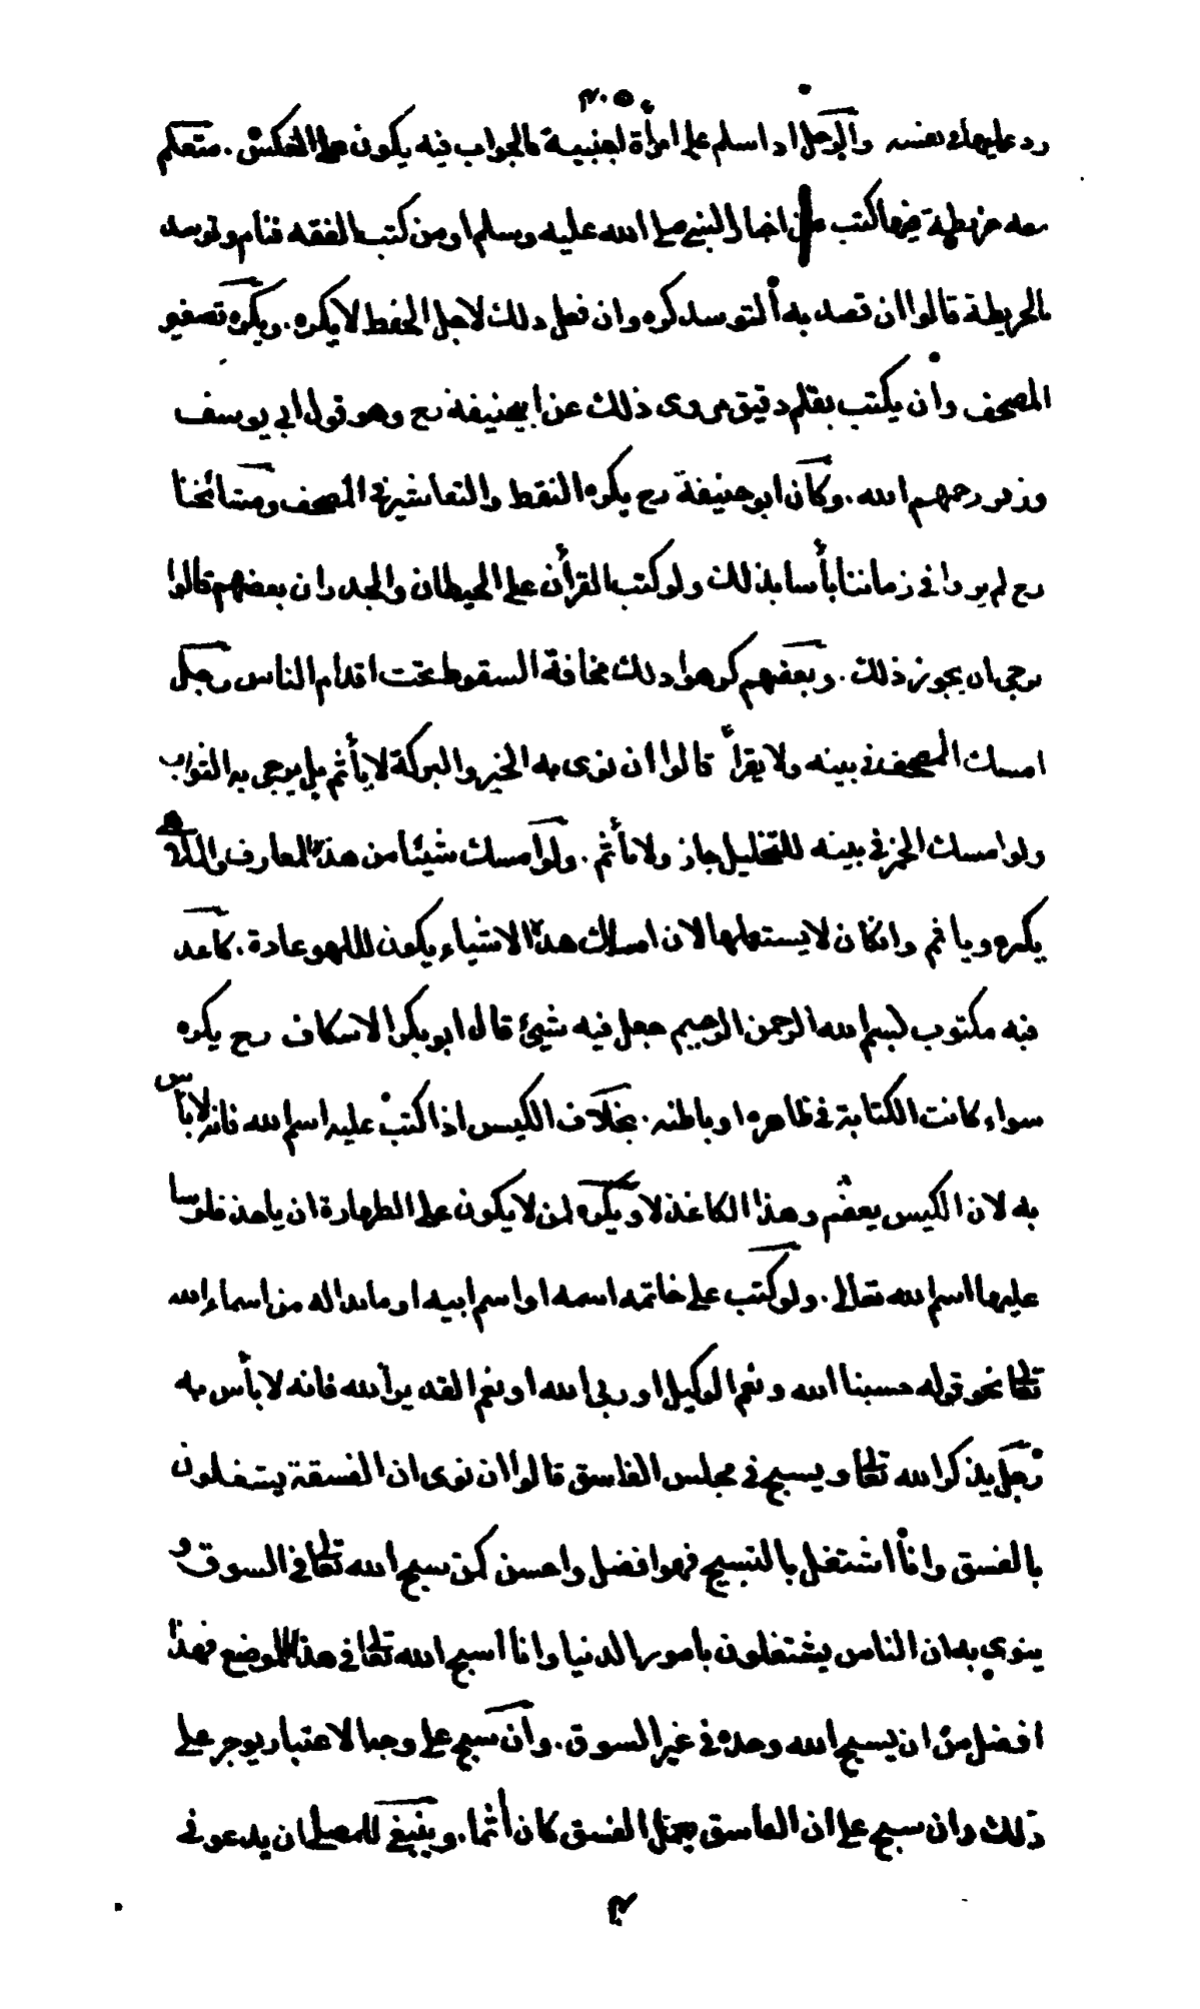 ٤٠٥
رد عليها في نفسه والرجل اذا سلم على امرأة اجنبية فالجواب فيه يكون على العكس . متعلم
معه خريطة فيها كتب من اخبار النبي صلى الله عليه وسلم او من كتب الفقه فنام وتوسد
بالخريطة قالوا ان قصد به التوسد كره وان فعل ذلك لاجل الحفظ لا يكره . ويكره تصغير
المصحف وان يكتب بقلم دقيق مروى ذلك عن ابيحنيفة رح وهو قول ابي يوسف
وزفر رحمهم الله . وكان ابو حنيفة رح يكره النقط والتعاشير في المصحف ومشائخنا
رح لم يروا في زماننا بأسا بذلك ولو كتب القرأن على الحيطان والجدران بعضهم قالوا
يرجى ان يجوز ذلك . وبعضهم كرهوا ذلك مخافة السقوط تحت اقدام الناس رجل
امسك المصحف في بيته ولا يقرأ قالوا ان نوى به الخير والبركة لا يأثم بل يرجى به الثواب
ولو امسك الخمر في بيته للتخليل جاز ولا يأثم . ولو امسك شيئا من هذه المعازف والملاهي
يكره ويأثم وان كان لا يستعملها لان امساك هذه الاشياء يكون للهو عادة . كاغد
فيه مكتوب بسم الله الرحمن الرحيم جعل فيه شيئ قال ابو بكر الاسكاف رح يكره
سواء كانت الكتابة في ظاهره او باطنه . بخلاف الكيس اذا كتب عليه اسم الله فانه لا بأس
به لان الكيس يعظم وهذا الكاغذ لا ويكره لمن لا يكون على الطهارة ان ياخذ فلوسا
عليها اسم الله تعالى . ولو كتب على خاتمه اسمه او اسم ابيه او ما بدا له من اسماء الله
تعالى نحو قوله حسبنا الله ونعم الوكيل او ربي الله او نعم القدير الله فانه لا بأس به
رجل يذكر الله تعالى ويسبح في مجلس الفاسق قالوا ان نوى ان الفسقة يشتغلون
بالفسق وانا اشتغل بالتسبيح فهو افضل واحسن كمن سبح الله تعالى في السوق و
ينوي به ان الناس يشتغلون بامور الدنيا وانا اسبح الله تعالى في هذا الموضع فهذا
افضل من ان يسبح الله وحده في غير السوق . وان سبح على وجه الاعتبار يوجر على
ذلك وان سبح على ان الفاسق يعمل الفسق كان أثما . وينبغي للمصلي ان يدعو في